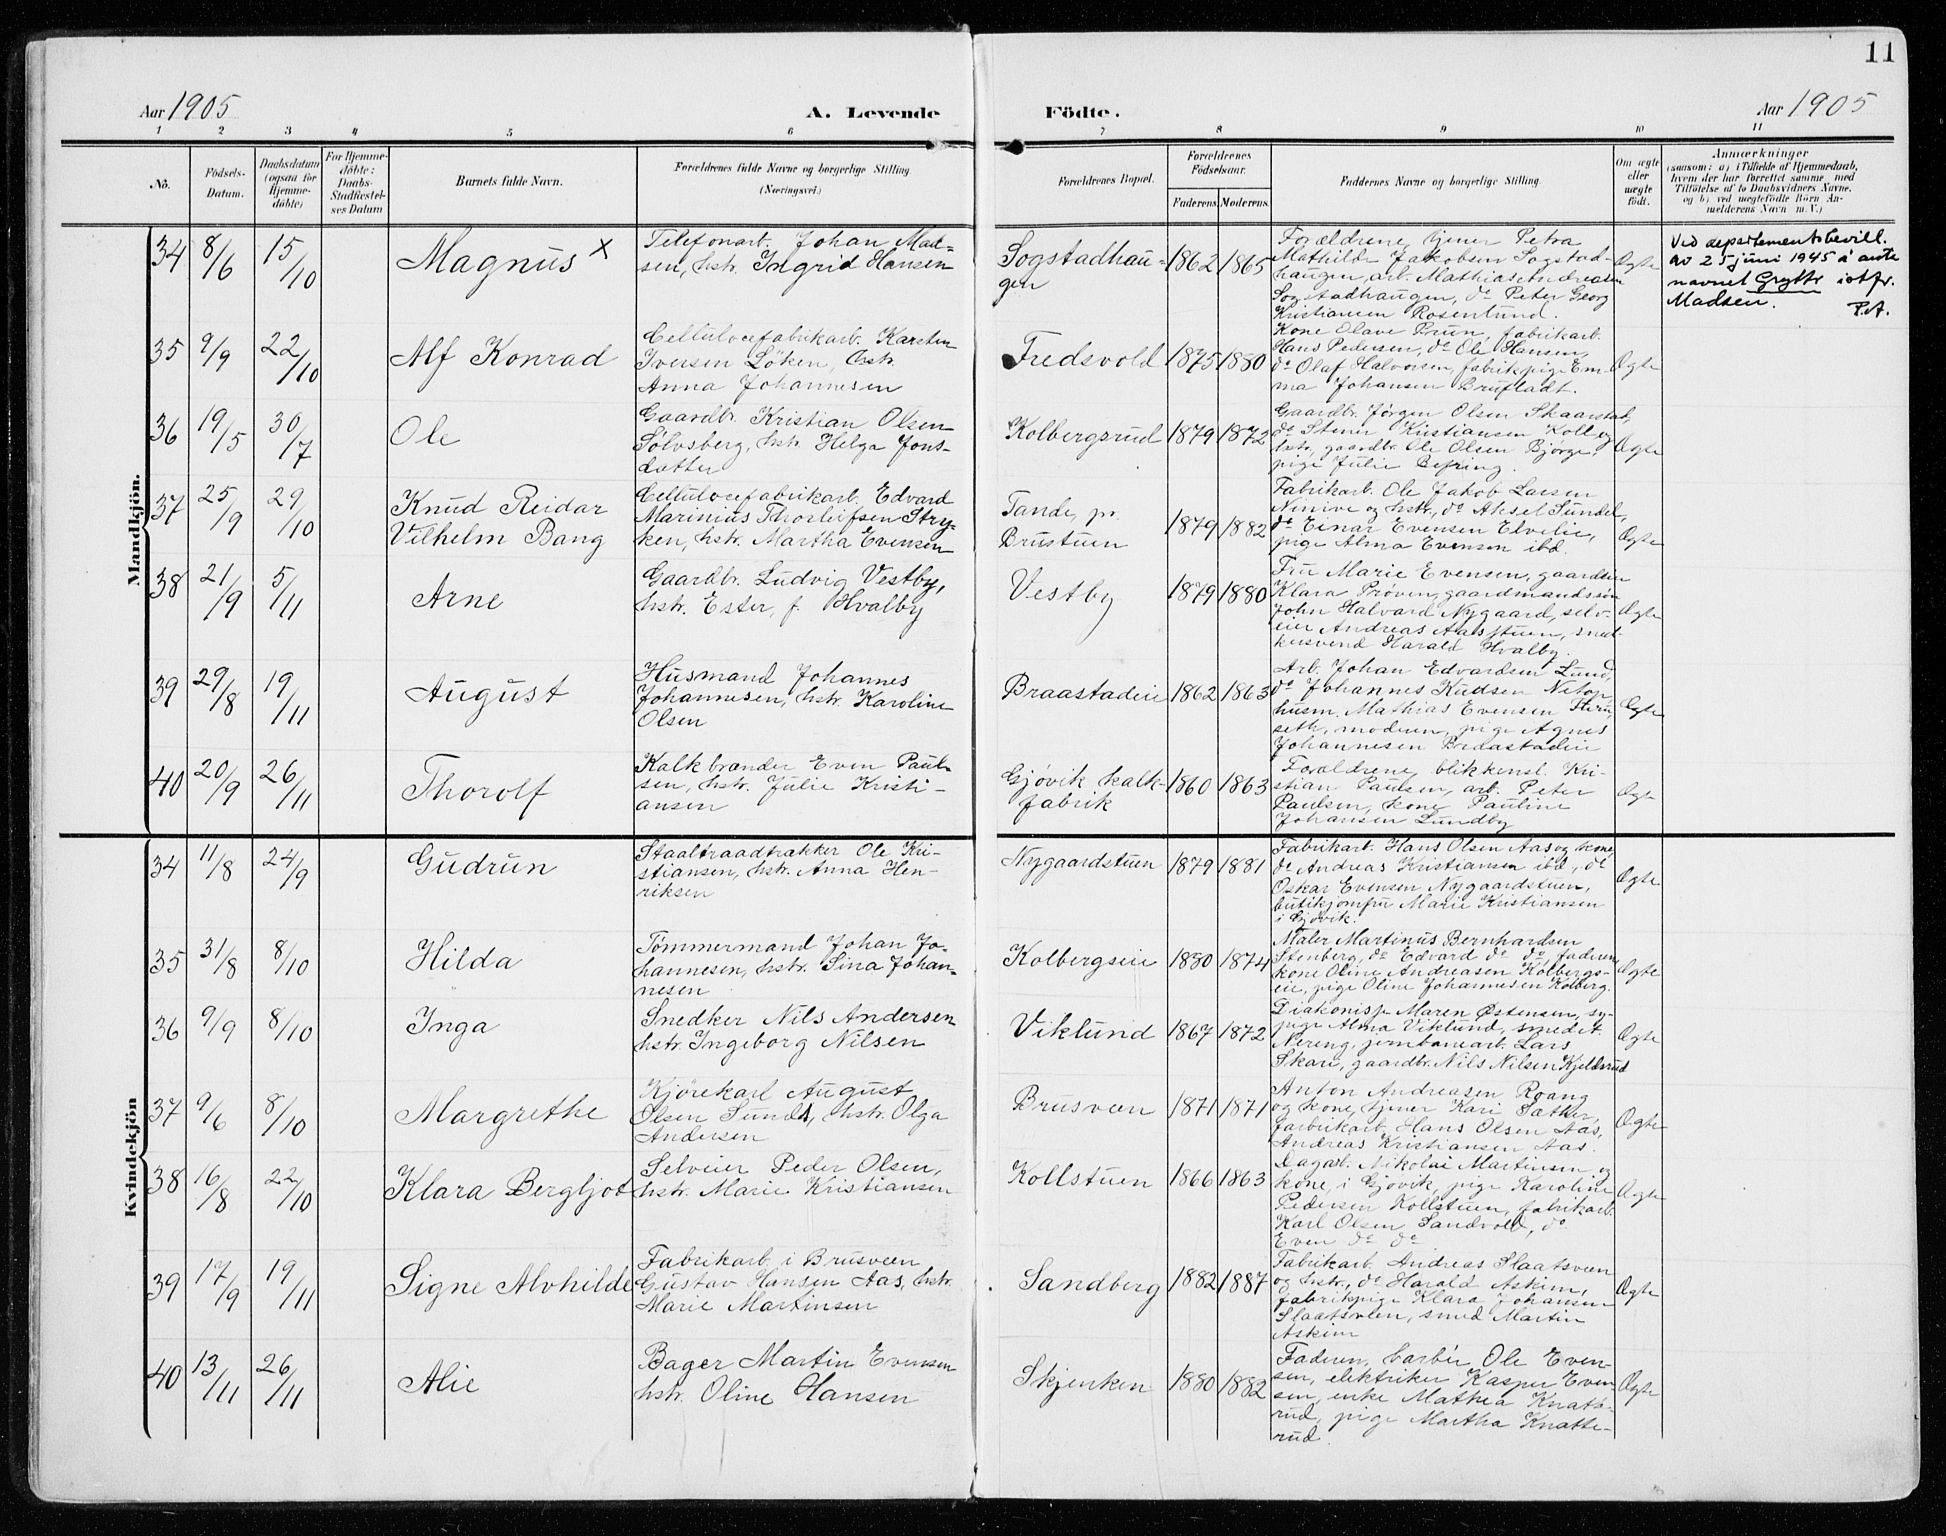 11
Aar 1905 A. Levende Födte. Aar 1905
1 2 3 4 5 6 7 8 9 10 11
No.
Födsels-
Datum.
Daabsdatum
(ogsaa for
Hjemme-
döbte)
For Hjemme-
döbte:
Daabs-
Stadfæstel-
ses Datum
Barnets fulde Navn.
Forældrenes fulde Navne og borgerlige Stilling
(Næringsvei.)
Forældrenes Bopæl.
Forældrenes
Födselsaar.
Faderens. Moderens.
Faddernes Navne og borgerlige Stilling.
Om ægte
eller
uægte
födt.
Anmærkninger
(saasom: a) i Tilfælde af Hjemmedaab,
hvem der har forrettet samme med
Tilföielse af to Daabsvidners Navne,
og b) ved uægtefödte Börn An-
melderens Navn m. V.)
Mandkjön.
34 8/6 15/10 Magnus x
Telefonarb. Johan Mad-
sen, hstr. Ingrid Hansen
Sogstadhau-
gen
1862 1865
Forældrene, tjener Petra
Mathilde Jakobsen Sogstad-
haugen, arb. Mathias Andreasen
Sogstadhaugen, do Peter Georg
Kristiansen Rosenlund.
Ægte
Ved departementsbevill.
av 25 juni 1945 å anta
navnet Grytte istfr.
Madsen. P.A.
35 9/9 22/10 Alf Konrad
Cellulosefabrikarb. Karsten
Iversen Löken, hstr.
Anna Johannesen
Fredsvold
1875 1880
Kone Olave Prun, fabrikarb.
Hans Pedersen, do Ole Hansen,
do Olaf Halvorsen, fabrikpige Em-
ma Johansen Brufladt.
Ægte
36 19/5 30/7 Ole
Gaardbr. Kristian Olsen
Sølvsberg, hstr. Helga Jons-
datter
Kolbergsrud
1879 1872
Gaardbr. Jørgen Olsen Skaarstad,
do Stener Kristiansen Koll og
hstr, gaardbr. Ole Olsen Bjørge,
pige Julie Befring.
Ægte
37 25/9 29/10 Knud Reidar
Vilhelm Bang
Cellulosefabrikarb. Edvard
Marinius Thorleifsen Stry-
ken, hstr. Martha Evensen
Tande, pr.
Brustuen
1879 1882
Fabrikarb. Ole Jakob Larsen
Ninive og hstr, do Aksel Sundel,
do Einar Evensen Elvelie,
pige Alma Evensen ibd.
Ægte
38 21/9 5/11 Arne
Gaardbr. Ludvig Vestby,
hstr. Ester, f. Hvalby
Vestby
1879 1880
Fru Marie Evensen, gaardeier
Klara Prøven, gaardmandssøn
John Halvard Nygaard, selv-
eier Andreas Aasstuen, sned-
kersvend Harald Hvalby.
Ægte
39 29/8 19/11 August
Husmand Johannes
Johannesen, hstr. Karoline
Olsen
Braastadeie
1862 1863
Arb. Johan Edvardsen Lund,
do Johannes Knudsen
husm. Mathias Evensen
seth, moderen, pige Agnes
Johannesen Braastadeie
Ægte
40 20/9 26/11 Thorolf
Kalkbrænder Even Paul-
sen, hstr. Julie Kristi-
ansen
Gjøvik kalk-
fabrik
1860 1863
Forældrene, blikkensl. Kri-
stian Paulsen, arb. Peter
Paulsen, kone Pauline
Johansen Lundby
Ægte
Kvindekjön
34 11/8 24/9 Gudrun
Staaltraadtrækker Ole Kri-
stiansen, hstr. Anna Hen-
riksen
Nygaardstuen
1879 1881
Fabrikarb. Hans Olsen Aas og kone,
do Andreas Kristiansen ibd, do
Oskar Evensen Nygaardstuen,
butikjomfru Marie Kristiansen
i Gjøvik.
Ægte
35 31/8 8/10 Hilda
Tømmermand Johan Jo-
hannesen, hstr. Sina Johan-
nesen
Kolbergseie
1880 1874
Maler Martinus Bernhardsen
Stenberg, do Edvard do do, faderen,
kone Oline Andreasen Kolbergs-
eie, pige Oline Johannesen Kolberg.
Ægte
36 9/9 8/10 Inga
Snedker Nils Andersen
hstr. Ingeborg Nilsen
Viklund
1867 1872
Diakonisse Maren Østensen, sy-
pige Alma Viklund, smed A.
Nereng, jernbanearb. Lars
Skare, gaardbr. Nils Nilsen Kjeldsrud
Ægte
37 9/6 8/10 Margrethe
Kjørekarl August
Olsen Sund, hstr. Olga
Andersen
Brusveen
1871 1871
Anton Andreasen Roang
og kone, tjener Kari Sæther,
fabrikarb. Hans Olsen Aas,
Andreas Kristiansen Aas.
Ægte
38 16/8 22/10 Klara Bergljot
Selveier Peder Olsen,
hstr. Marie Kristiansen
Kollstuen
1866 1863
Dagarb. Nikolai Martinsen og
kone, i Gjøvik, pige Karoline
Pedersen Kollstuen, fabrikarb.
Karl Olsen Sandvold, do
Even do do
Ægte
39 17/9 19/11 Signe Alvhilde
Fabrikarb. i Brusveen
Gustav Hansen Aas, hstr.
Marie Martinsen
Sandberg
1882 1887
Fabrikarb. Andreas Slaatsveen
og hstr, do Harald Askim,
fabrikpige Klara Johansen
Slaatsveen, smed Martin
Askim
Ægte
40 13/11 26/11 Alie
Bager Martin Evensen
hstr. Oline Hansen
Skjenken
1880 1882
Faderen, barbér Ole Even-
sen, elektriker Kasper Even-
sen, enke Mathea Knatte-
rud, pige Martha Knatte-
rud
Ægte